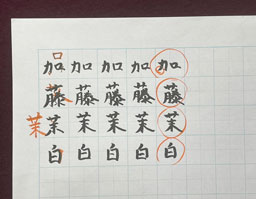 加加加加加
藤藤藤藤藤
茉茉茉茉茉
白白白白白
口
茉